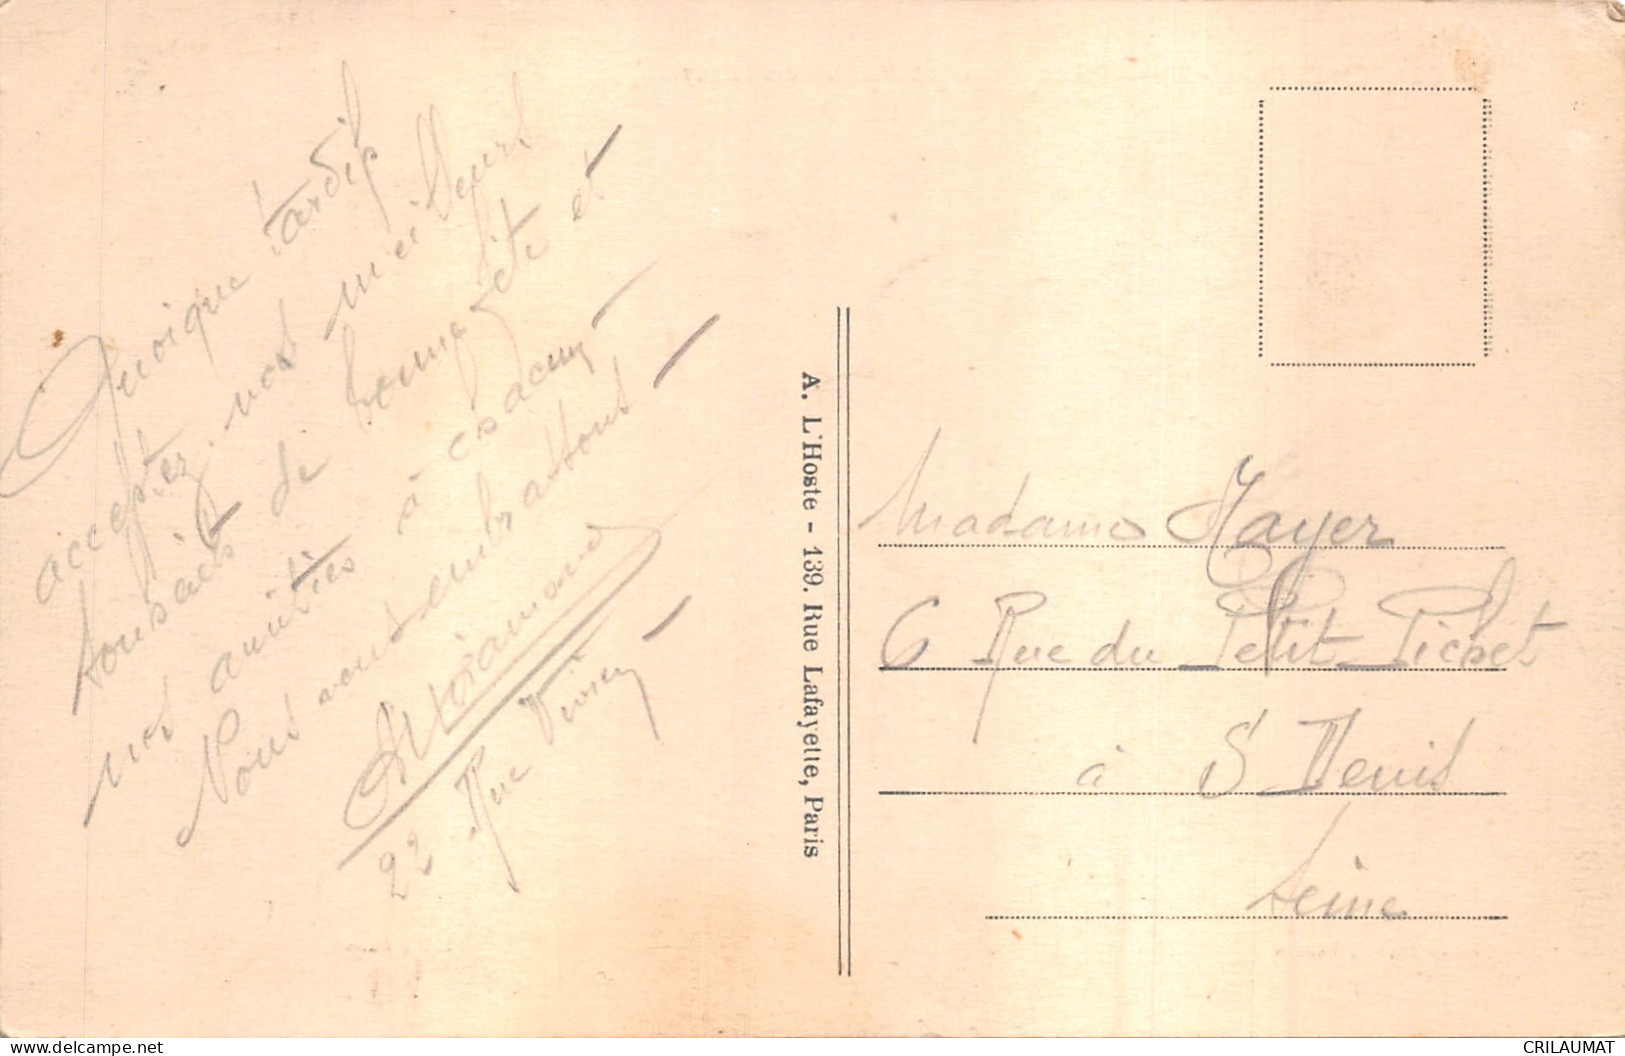 Quoique tardif
acceptez nos meilleurs
souhaits de bonne fête et
nos amitiés à chacun
Nous vous embrassons
22 Rue
A. L'Hoste - 139. Rue Lafayette, Paris
Madame Mayer
6 Rue du Petit Pichet
à St Denis
Seine
CRILAUMAT